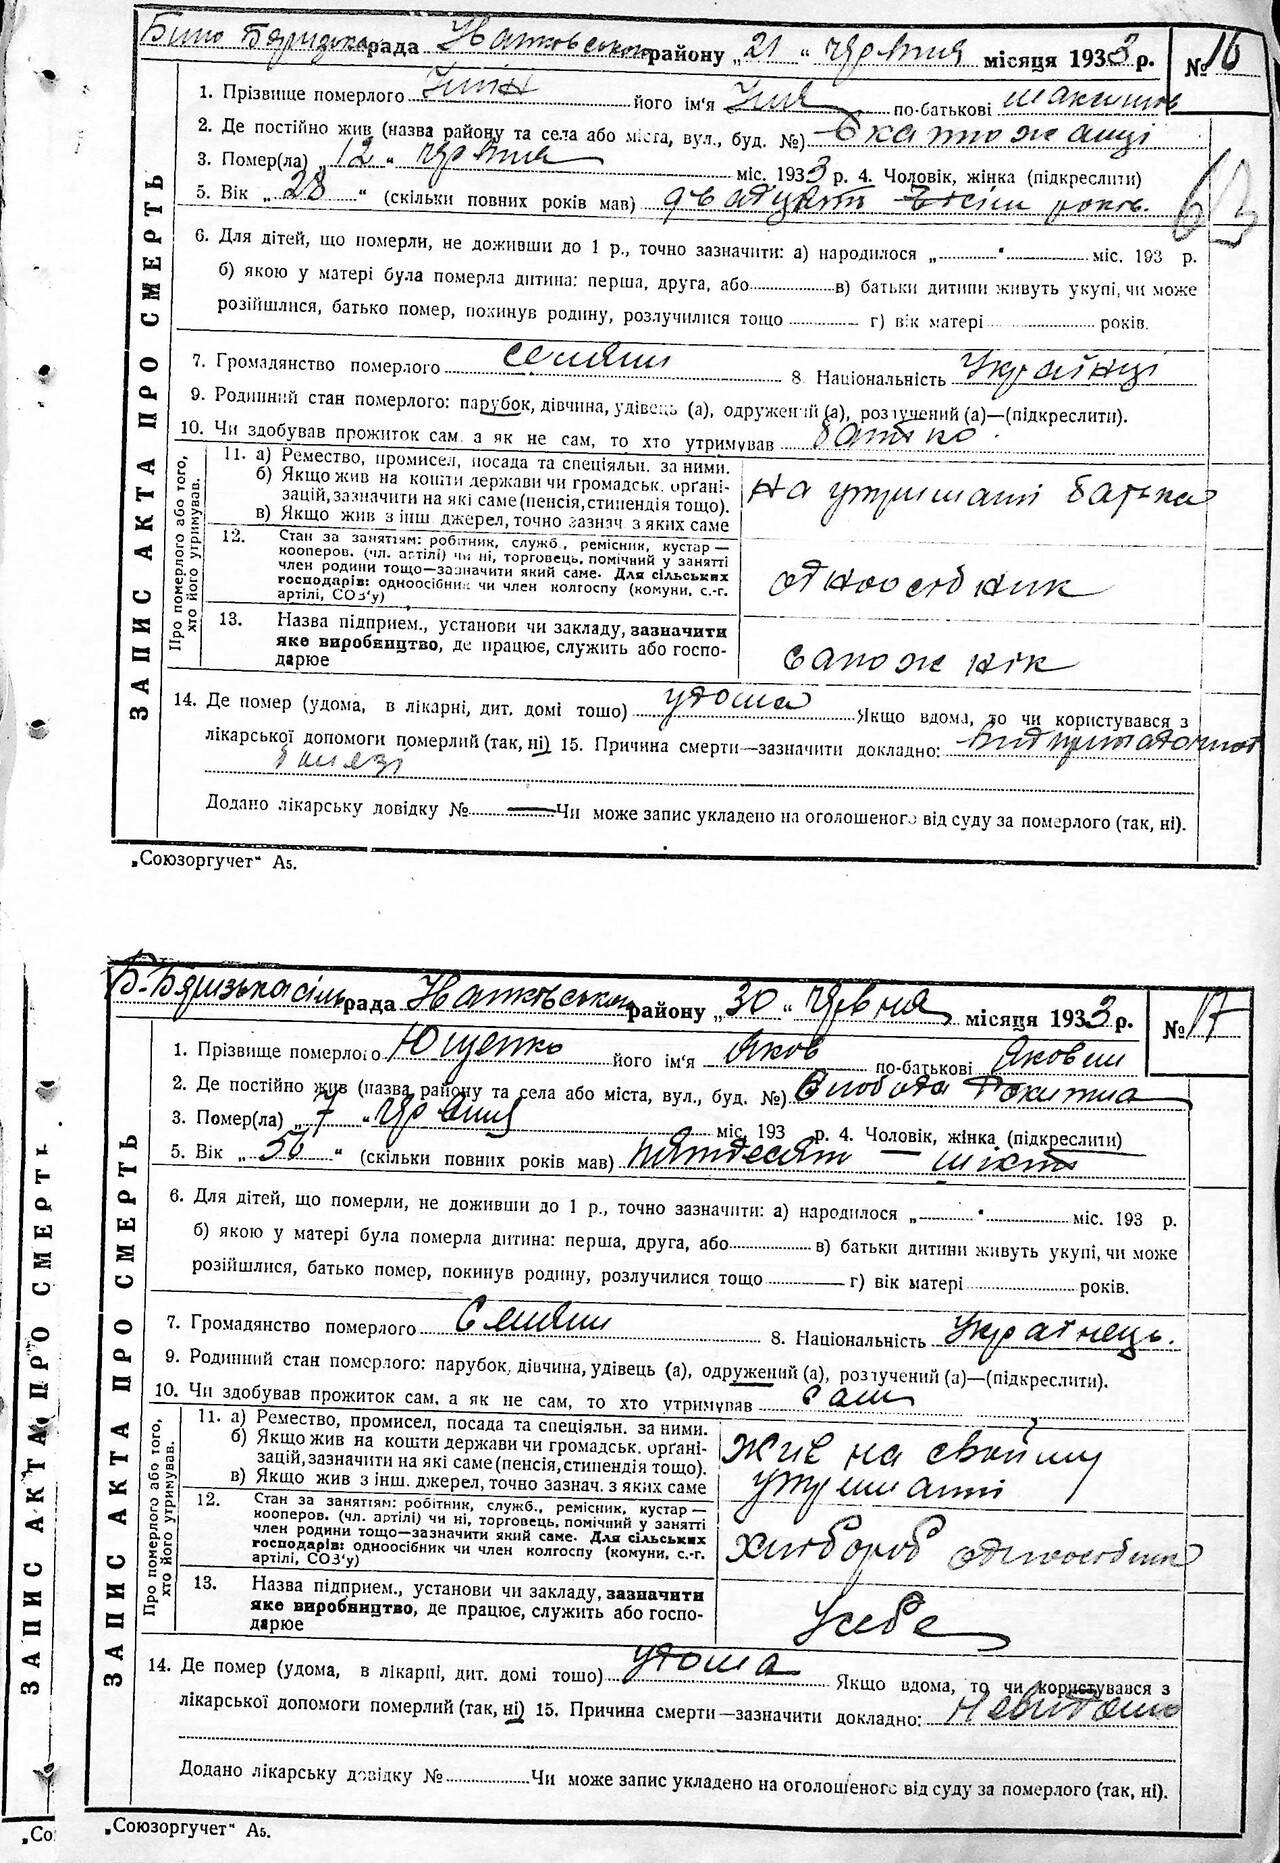 рада району „21“ червня місяця 1933 р. № 16
1. Прізвище померлого його ім'я по-батькові
2. Де постійно жив (назва району та села або міста, вул., буд. №)
3. Помер(ла) „12“ червня міс. 1933 р. 4. Чоловік, жінка (підкреслити)
5. Вік „28“ (скільки повних років мав) двадцять вісім років.
6. Для дітей, що померли, не доживши до 1 р., точно зазначити: а) народилося „ “ міс. 193 р.
б) якою у матері була померла дитина: перша, друга, або в) батьки дитини живуть укупі, чи може
розійшлися, батько помер, покинув родину, розлучилися тощо г) вік матері років.
7. Громадянство померлого 8. Національність Українці
9. Родинний стан померлого: парубок, дівчина, удівець (а), одружений (а), розлучений (а)—(підкреслити).
10. Чи здобував прожиток сам, а як не сам, то хто утримував батько.
ЗАПИС АКТА ПРО СМЕРТЬ
Про померлого або того, хто його утримував.
11. а) Ремество, промисел, посада та спеціяльн. за ними.
б) Якщо жив на кошти держави чи громадськ. орґані-
зацій, зазначити на які саме (пенсія, стипендія тощо).
в) Якщо жив з інш. джерел, точно зазнач. з яких саме
на утриманні батька
12. Стан за заняттям: робітник, служб., ремісник, кустар—
кооперов. (чл. артілі) чи ні, торговець, помічний у занятті
член родини тощо—зазначити який саме. Для сільських
господарів: одноосібник чи член колгоспу (комуни, с.-г.
артілі, СОЗ'у)
одноосібник
13. Назва підприєм., установи чи закладу, зазначити
яке виробництво, де працює, служить або госпо-
дарює
сапожнік
14. Де помер (удома, в лікарні, дит. домі тощо) удома Якщо вдома, то чи користувався з
лікарської допомоги померлий (так, ні) 15. Причина смерти—зазначити докладно:
Додано лікарську довідку № Чи може запис укладено на оголошеного від суду за померлого (так, ні).
„Союзоргучет“ А5.
рада району „30“ червня місяця 1933 р. № 17
1. Прізвище померлого Ющенко його ім'я Яков по-батькові Яковлів
2. Де постійно жив (назва району та села або міста, вул., буд. №) Слобода Рокитна
3. Помер(ла) „7“ червня міс. 193 р. 4. Чоловік, жінка (підкреслити)
5. Вік „56“ (скільки повних років мав) пятдесят — шість
6. Для дітей, що померли, не доживши до 1 р., точно зазначити: а) народилося „ “ міс. 193 р.
б) якою у матері була померла дитина: перша, друга, або в) батьки дитини живуть укупі, чи може
розійшлися, батько помер, покинув родину, розлучилися тощо г) вік матері років.
7. Громадянство померлого 8. Національність Українець.
9. Родинний стан померлого: парубок, дівчина, удівець (а), одружений (а), розлучений (а)—(підкреслити).
10. Чи здобував прожиток сам, а як не сам, то хто утримував сам
ЗАПИС АКТА ПРО СМЕРТЬ
Про померлого або того, хто його утримував.
11. а) Ремество, промисел, посада та спеціяльн. за ними.
б) Якщо жив на кошти держави чи громадськ. орґані-
зацій, зазначити на які саме (пенсія, стипендія тощо).
в) Якщо жив з інш. джерел, точно зазнач. з яких саме
Жив на своїму
утриманні
12. Стан за заняттям: робітник, служб., ремісник, кустар—
кооперов. (чл. артілі) чи ні, торговець, помічний у занятті
член родини тощо—зазначити який саме. Для сільських
господарів: одноосібник чи член колгоспу (комуни, с.-г.
артілі, СОЗ'у)
Хлібороб одноосібник
13. Назва підприєм., установи чи закладу, зазначити
яке виробництво, де працює, служить або госпо-
дарює
У себе
14. Де помер (удома, в лікарні, дит. домі тощо) удома Якщо вдома, то чи користувався з
лікарської допомоги померлий (так, ні) 15. Причина смерти—зазначити докладно: Невидомо
Додано лікарську довідку № Чи може запис укладено на оголошеного від суду за померлого (так, ні).
„Союзоргучет“ А5.
ЗАПИС АКТА ПРО СМЕРТЬ
„Со